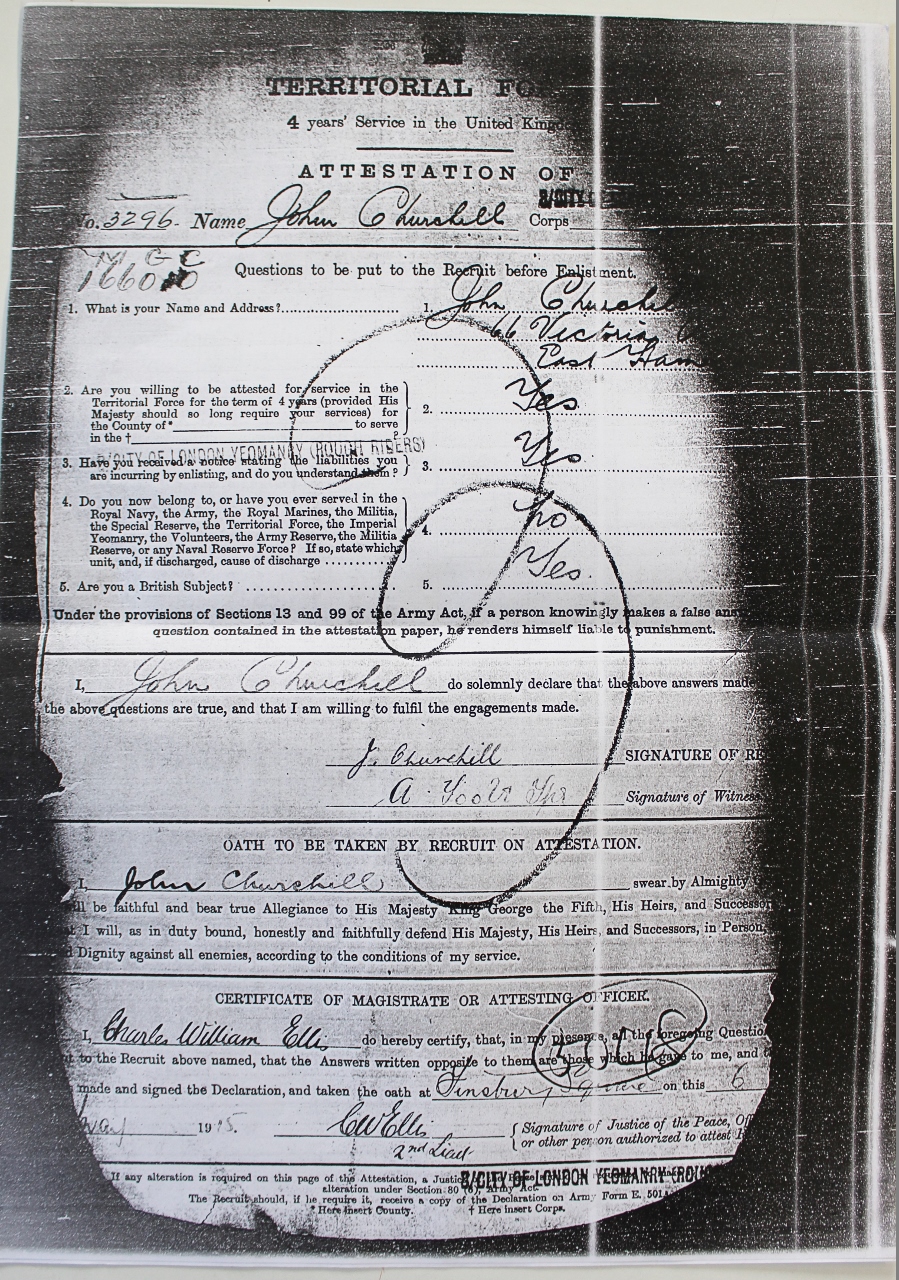 TERRITORIAL FO
4 years' Service in the United Kingdo
ATTESTATION OF
No. 3296. Name John Churchill Corps
M G C
Questions to be put to the Recruit before Enlistment.
1. What is your Name and Address? 1. John Churchill
66 Victoria
East Ham
2. Are you willing to be attested for service in the
Territorial Force for the term of 4 years (provided His
Majesty should so long require your services) for
the County of* to serve
in the † ?
2. Yes
CITY OF LONDON YEOMANRY (ROUGH RIDERS)
3. Have you received a notice stating the liabilities you
are incurring by enlisting, and do you understand them?
3. Yes
4. Do you now belong to, or have you ever served in the
Royal Navy, the Army, the Royal Marines, the Militia,
the Special Reserve, the Territorial Force, the Imperial
Yeomanry, the Volunteers, the Army Reserve, the Militia
Reserve, or any Naval Reserve Force? If so, state which
unit, and, if discharged, cause of discharge
4. No
5. Are you a British Subject? 5. Yes.
Under the provisions of Sections 13 and 99 of the Army Act, if a person knowingly makes a false ans
question contained in the attestation paper, he renders himself liable to punishment.
I, John Churchill do solemnly declare that the above answers made
the above questions are true, and that I am willing to fulfil the engagements made.
J. Churchill SIGNATURE OF RE
A Signature of Witness
OATH TO BE TAKEN BY RECRUIT ON ATTESTATION.
I, John Churchill swear by Almighty
ll be faithful and bear true Allegiance to His Majesty King George the Fifth, His Heirs, and Successor
I will, as in duty bound, honestly and faithfully defend His Majesty, His Heirs, and Successors, in Person,
d Dignity against all enemies, according to the conditions of my service.
CERTIFICATE OF MAGISTRATE OR ATTESTING OFFICER.
I, Charles William Ellis do hereby certify, that, in my presence, all the foregoing Questio
to the Recruit above named, that the Answers written opposite to them are those which he gave to me, and
made and signed the Declaration, and taken the oath at Finsbury Square on this 6
May 1915. CWEllis Signature of Justice of the Peace, Of
2nd Lieut or other person authorized to attest
If any alteration is required on this page of the Attestation, a Justice
alteration under Section 80 (6), Army Act.
B/CITY OF LONDON YEOMANRY (ROUG
The Recruit should, if he require it, receive a copy of the Declaration on Army Form E. 501
* Here insert County. † Here insert Corps.